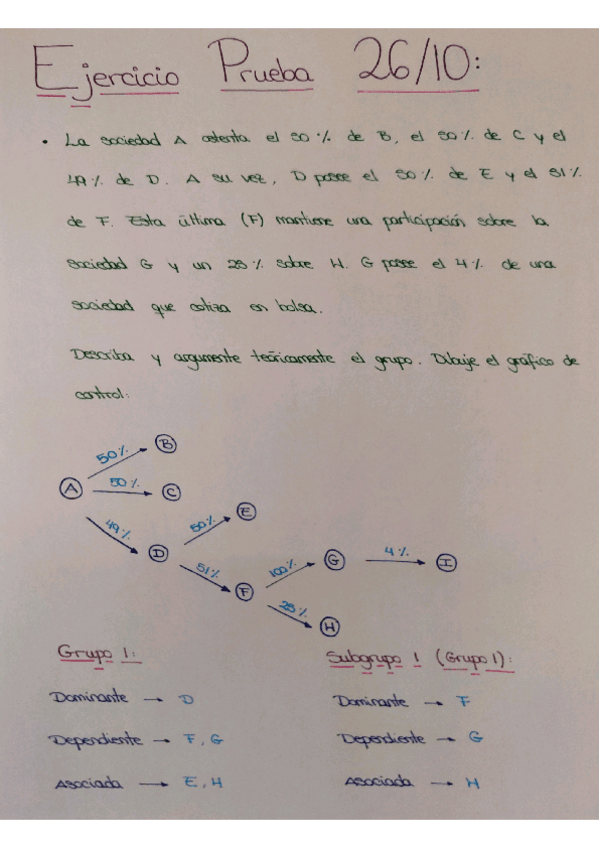 Ejercicio Prueba 26/10:
• La sociedad A ostenta el 50% de B, el 50% de C y el
49% de D. A su vez, D posee el 50% de E y el 51%
de F. Esta última (F) mantiene una participación sobre la
sociedad G y un 25% sobre H. G posee el 4% de una
sociedad que cotiza en bolsa.
Describa y argumente teóricamente el grupo. Dibuje el gráfico de
control:
50% B
A 50% C
49% D 50% E
51% F 100% G 4% I
25% H
Grupo 1:
Dominante → D
Dependiente → F, G
Asociada → E, H
Subgrupo 1 (Grupo 1):
Dominante → F
Dependiente → G
Asociada → H